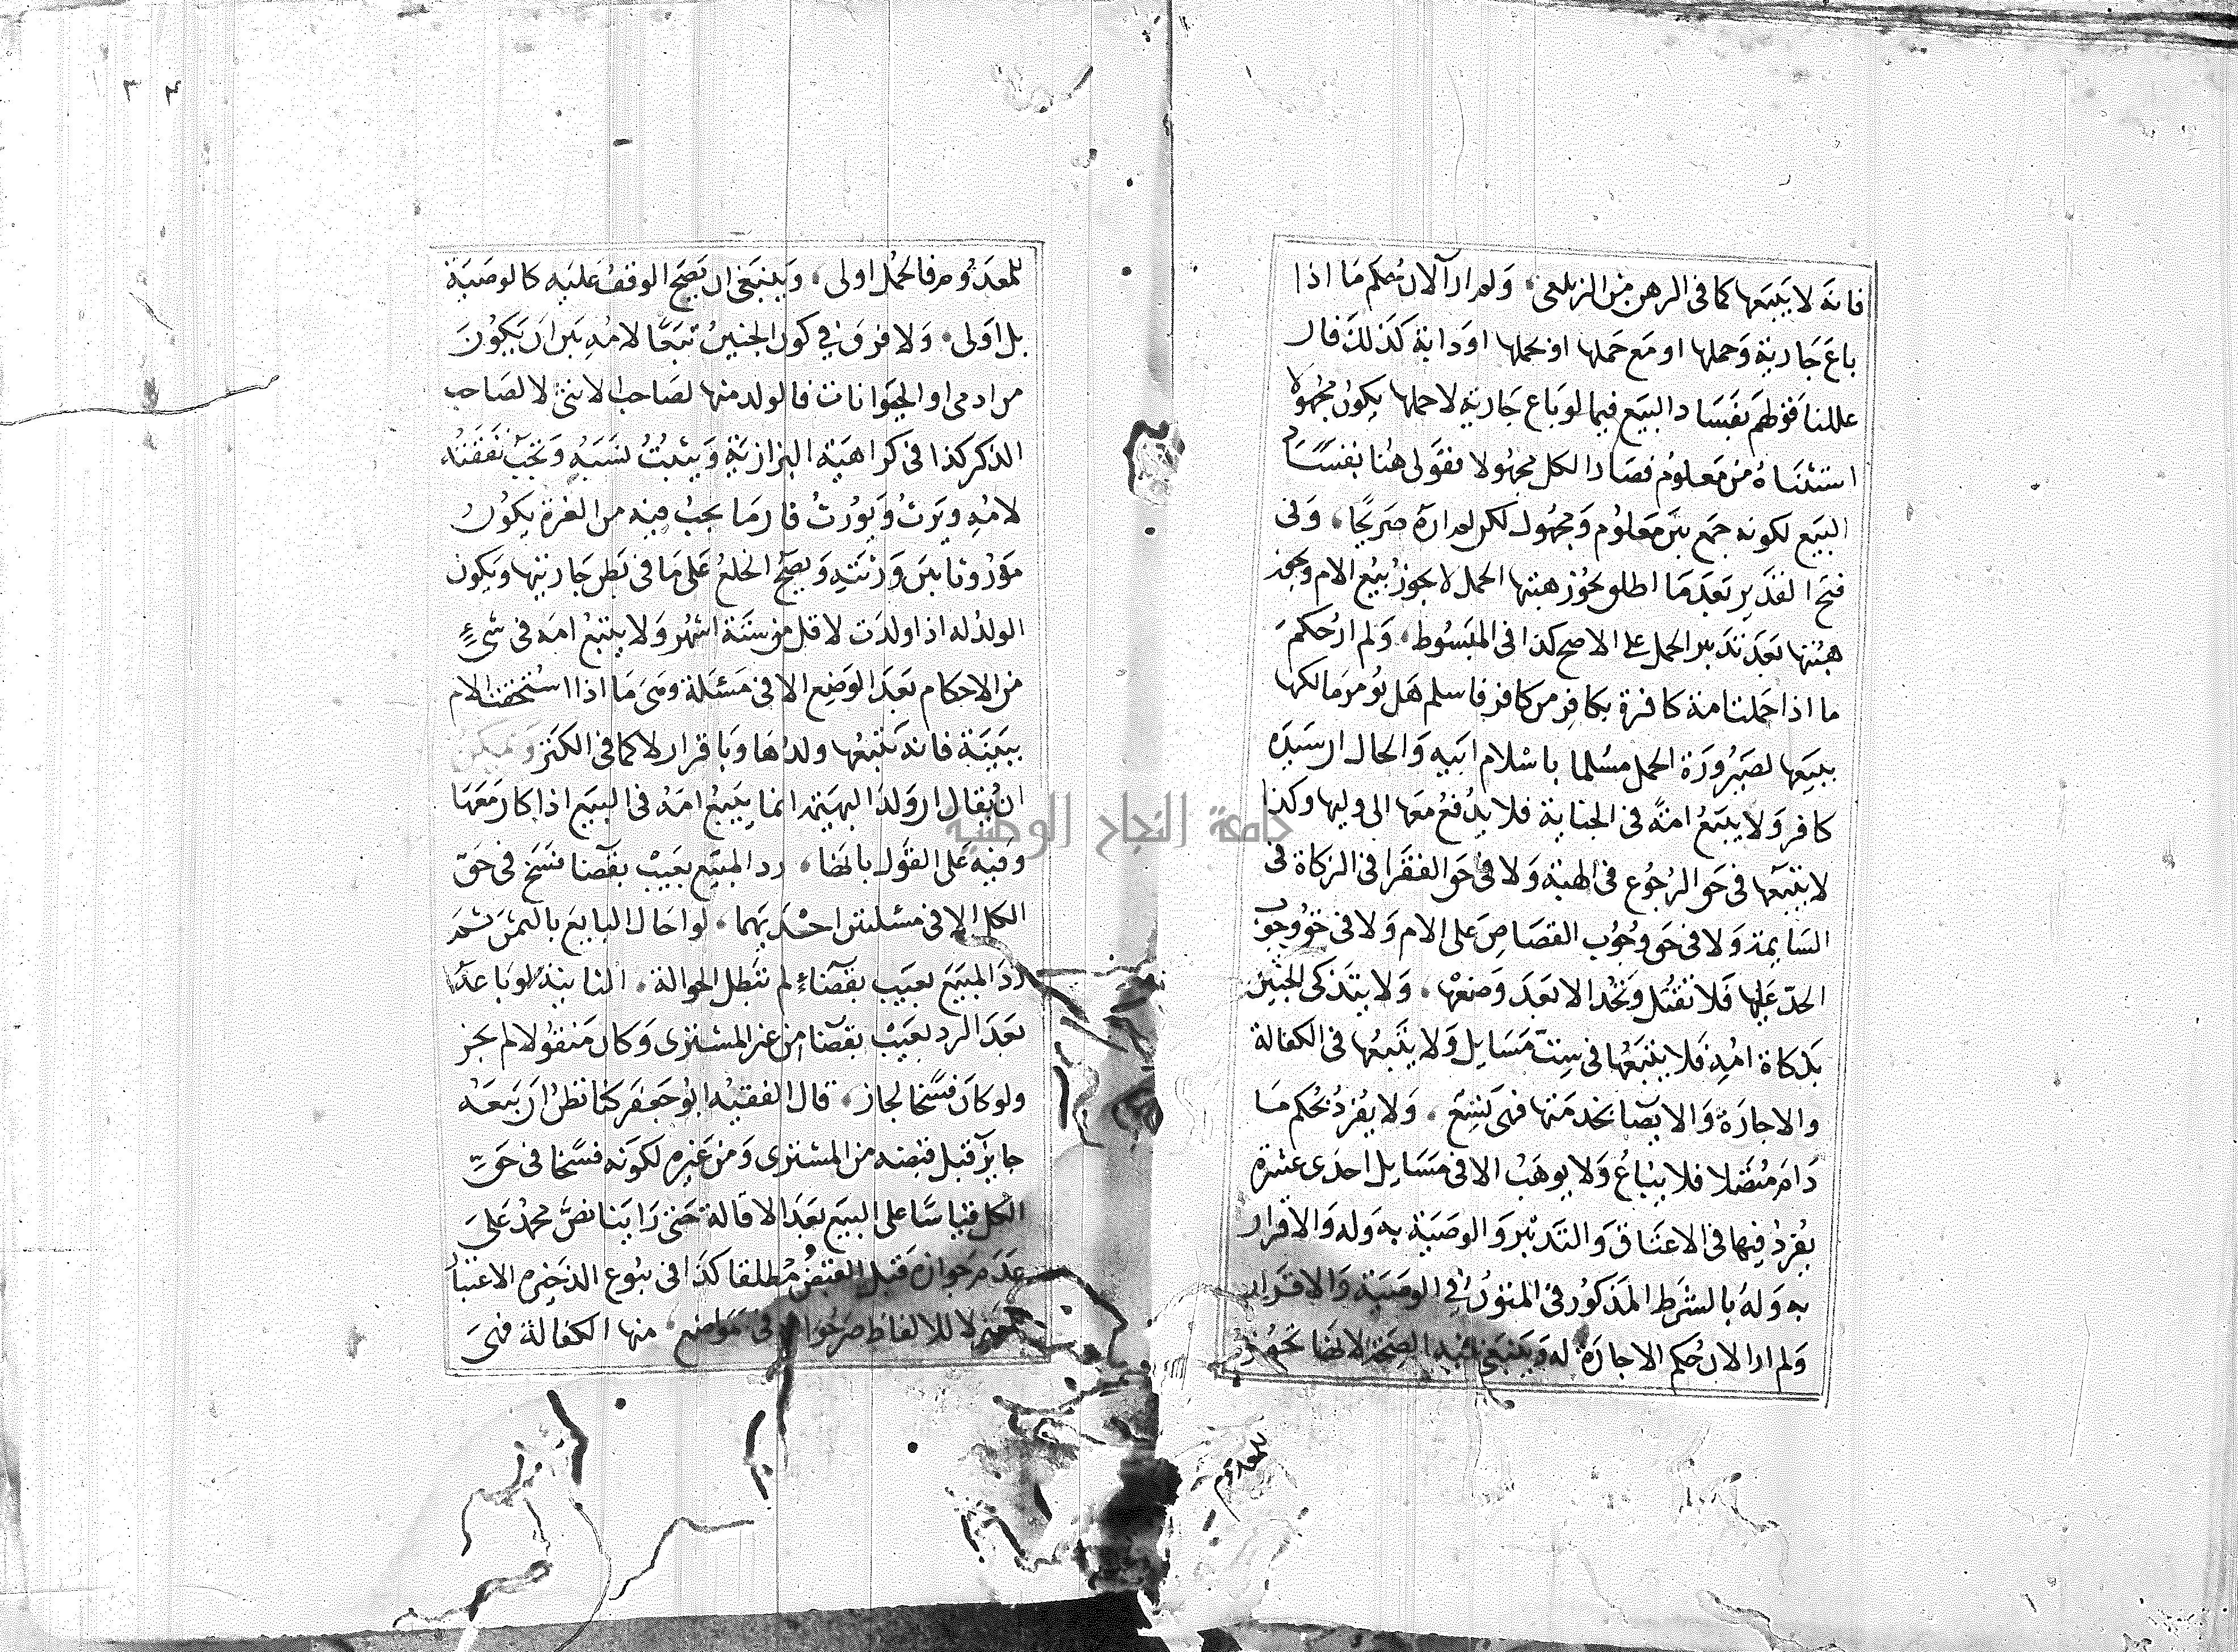 فانه لا يتبعها كما في الرهن من الزيلعي، ولم ار الآن حكم ما اذا
باع جارية وحملها او مع حملها او بحملها او دابة كذلك فان
عللنا قولهم بفساد البيع فيما لو باع جارية الا حملها بكون مجهولا
استثناه من معلوم فصار الكل مجهولا نقول هنا بفساد
البيع لكونه جمع بين معلوم ومجهول لكن لم اره صريحا، وفي
فتح القدير بعد ما اطلق يجوز هبتها الحمل لا يجوز بيع الام وتجوز
هبتها بعد تدبير الحمل على الاصح كذا في المبسوط، ولم ار حكم
ما اذا حملت امة كافرة بكافر من كافر فاسلم هل يومر مالكها
ببيعها لصيرورة الحمل مسلما باسلام ابيه والحال ان سيده
كافر ولا يتبع امه في الجناية فلا يدفع معها الى وليها وكذا
لا يتبعها في حق الرجوع في الهبة ولا في حق الفقرا في الزكاة في
السايمة ولا في حق وجوب القصاص على الام ولا في حق وجوب
الحد عليها فلا تقتل وتحد الا بعد وضعها، ولا يتذكى الجنين
بذكاة امه فلا يتبعها في ست مسايل ولا يتبعها في الكفالة
والاجارة والايصا بخدمتها فهي تسع، ولا يفرد بحكم ما
دام متصلا فلا يباع ولا يوهب الا في مسايل احدى عشرة
يفرد فيها في الاعتاق والتدبير والوصية به وله والاقرار
به وله بالشرط المذكور في المتون في الوصية والاقرار
ولم ار الان حكم الاجارة له وينبغي فيه الصحة لانها تجوز
للمعدوم
للمعدوم فالحمل اولى، وينبغي ان يصح الوقف عليه كالوصية
بل اولى، ولا فرق في كون الجنين تبعا لامه بين ان يكون
من ادمي او الحيوانات فالولد منها لصاحب الانثى لا لصاحب
الذكر كذا في كراهية البزازية ويثبت نسبه وتجب نفقته
لامه ويرث ويورث فان ما يجب فيه من الغرة يكون
موروثا بين ورثته ويصح الخلع على ما في بطن جاريتها ويكون
الولد له اذا ولدت لاقل من ستة اشهر ولا يتبع امه في شيء
من الاحكام بعد الوضع الا في مسئلة وهي ما اذا استحقت الام
ببينة فانه يتبعها ولدها وباقرار لا كما في الكنز ويمكن
ان يقال ان ولد البهيمة انما يتبع امه في البيع اذا كان معها
وقيه على القول بالهنا، رد المبيع بعيب بقضا فسخ في حق
الكل الا في مسئلتين احديهما، لو احال البايع بالثمن ثم
رد المبيع بعيب بقضاء لم تبطل الحوالة، الثانية لو باعه
بعد الرد بعيب بقضا من غير المشتري وكان منقولا لم يجز
ولو كان فسخا لجاز، قال الفقيه ابو جعفر كنا نظن ان بيعه
جايز قبل قبضه من المشتري ومن غيره لكونه فسخا في حق
الكل قياسا على البيع بعد الاقالة حتى راينا نص محمد على
عدم جوازه قبل القبض مطلقا كذا في بيوع الذخيرة الاعتبار
للمعنى لا للالفاظ صرحوا به في مواضع، منها الكفالة فهي
٣٤
جامعة النجاح الوطنية